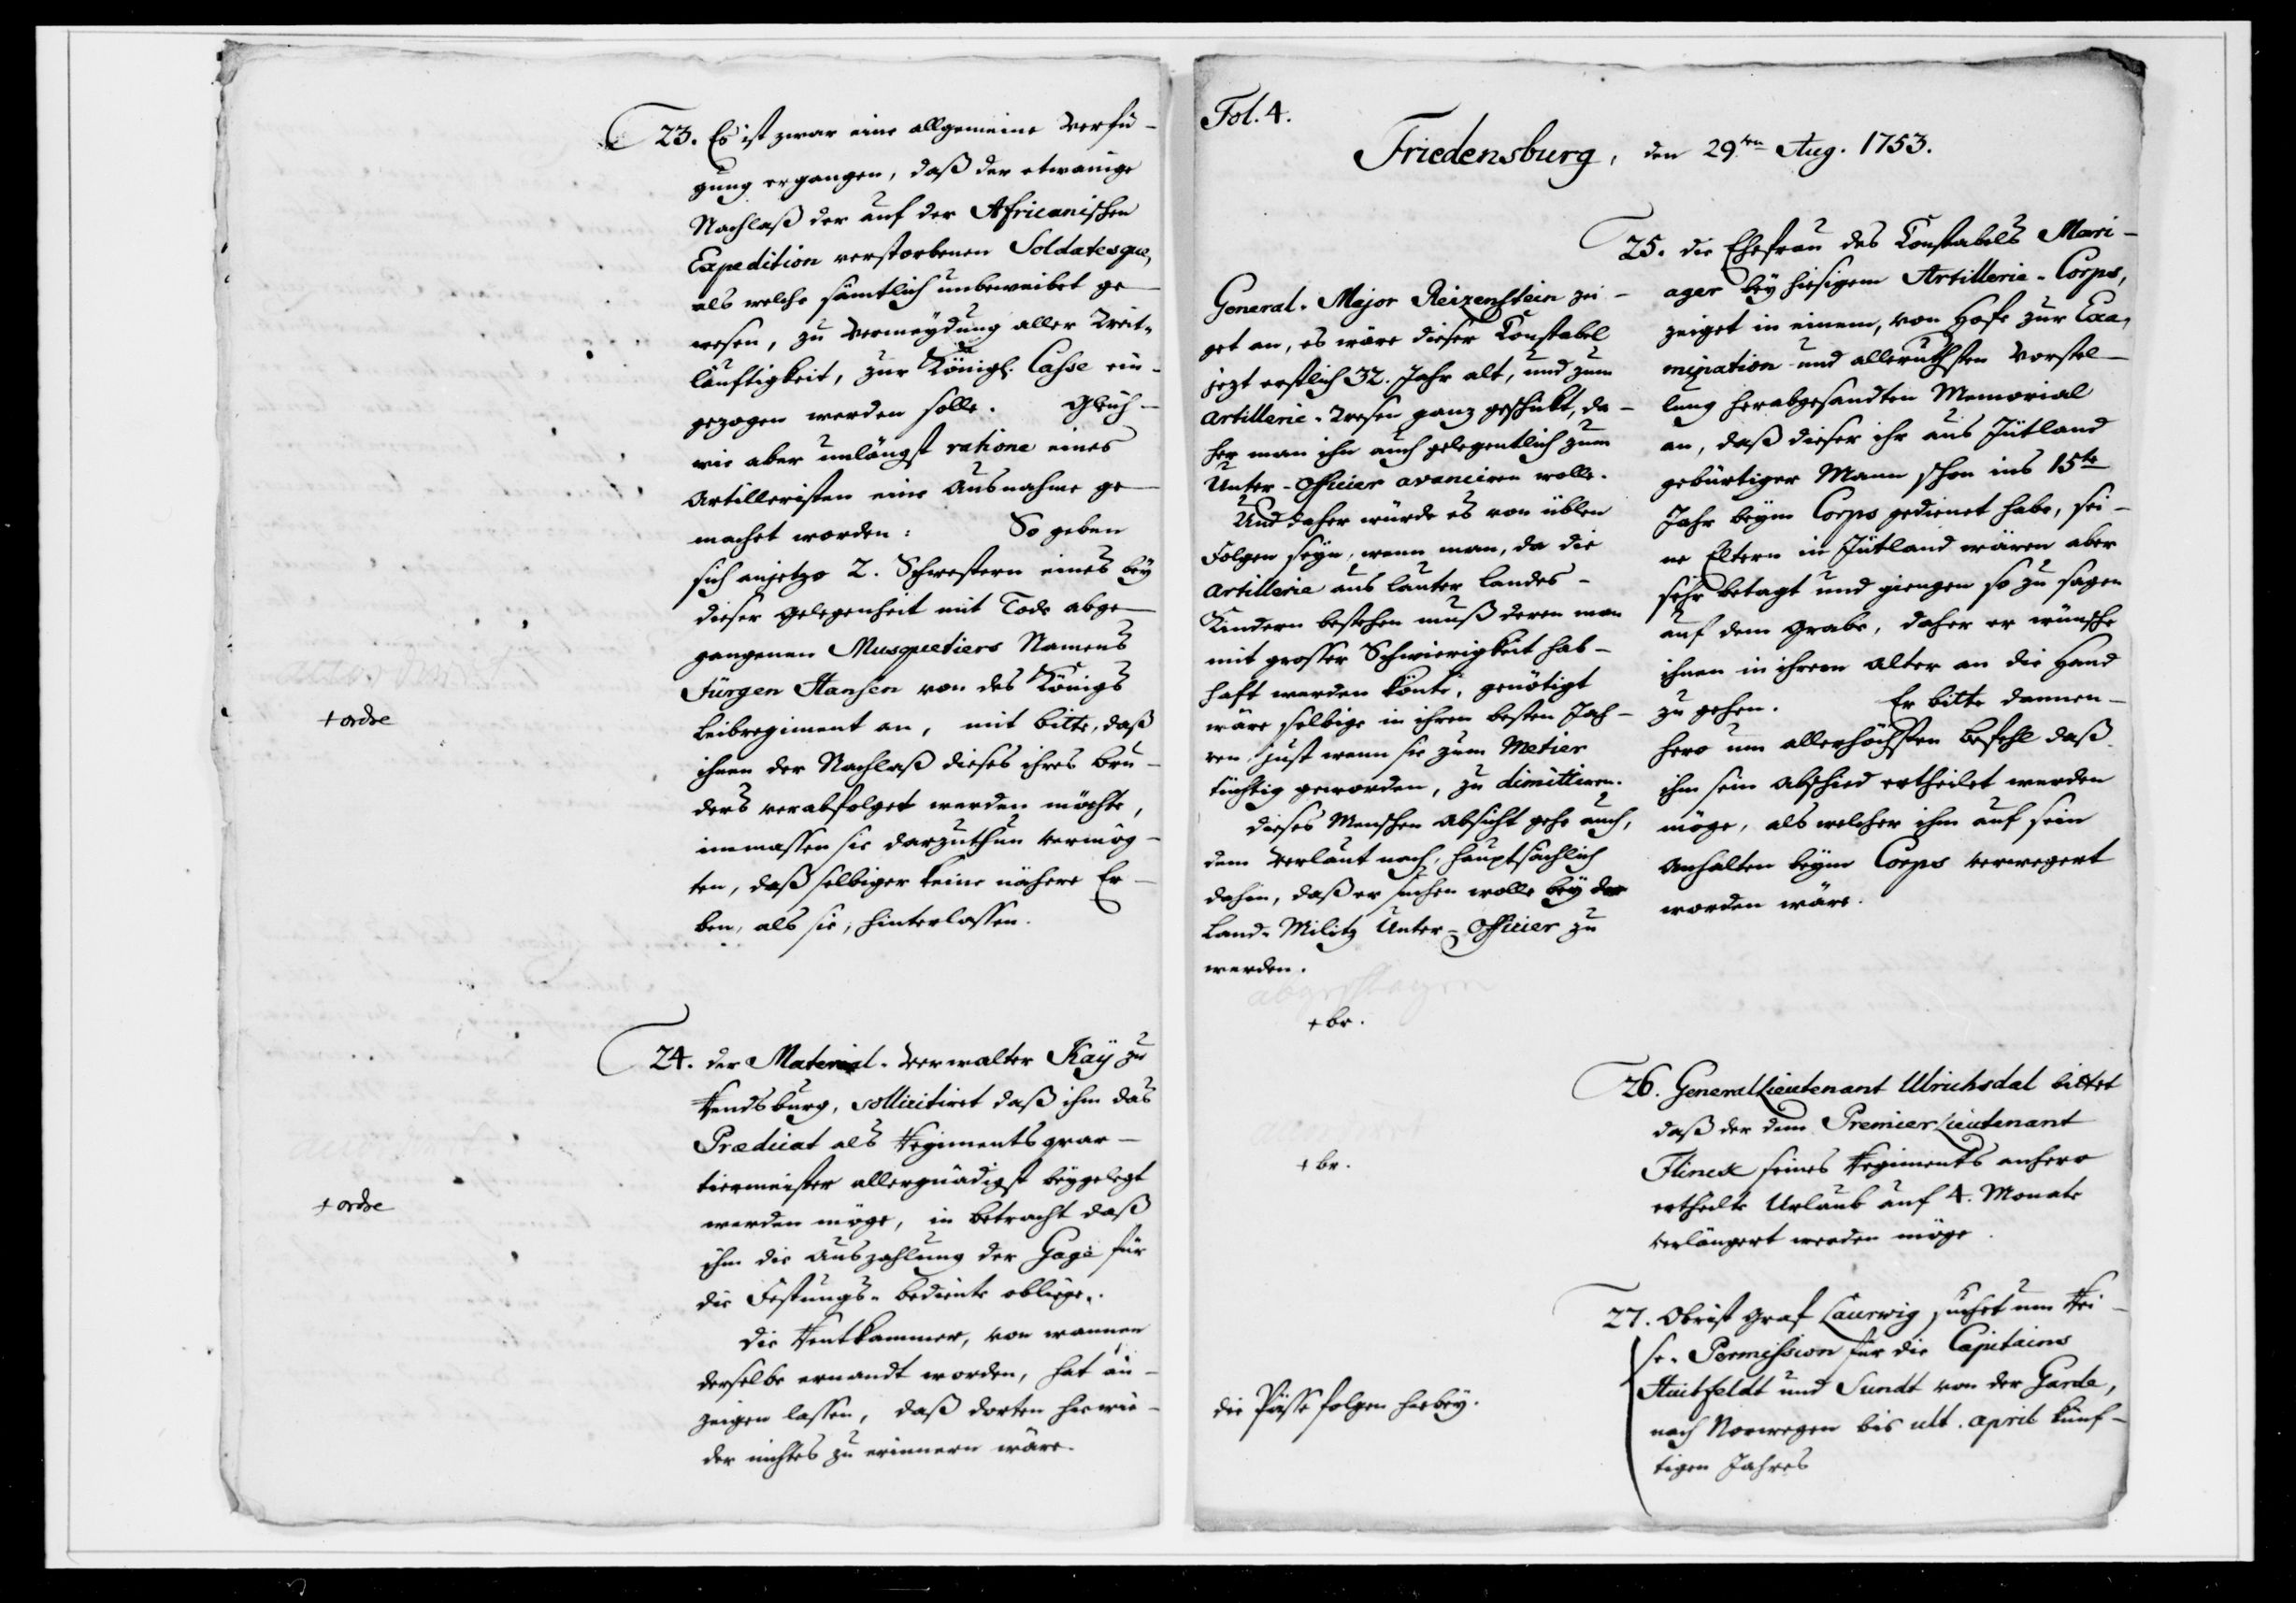 23. Es ist zwar eine allgemeine Verfü-
gung ergangen, daß der etwanige
Nachlaß der auf der Africanischen
Expedition verstorbenen Soldatesque,
als welche sämtlich unbeweibet ge-
wesen, zu Vermeÿdung aller Weit-
läuftigkeit, zur Königl. Casse ein-
gezogen werden solle. Gleich-
wie aber unlängst ratione eines
Artilleristen eine Ausnahme ge-
machet worden: So geben
sich anjetzo 2. Schwestern eines beÿ
dieser Gelegenheit mit Tode abge-
gangenen Musquetiers Namens
Jürgen Hansen von des Königs
Leibregiment an, mit bitte, daß
ihnen der Nachlaß dieses ihres Bru-
ders verabfolget werden möchte,
immassen sie darzuthun vermög-
ten, daß selbiger keine nähere Er-
ben, als sie, hinterlassen.
+ ordre
24. der Material-Verwalter Kaÿ zu
Rendsburg, sollicitiret daß ihm das
Prædicat als Regimentsquar-
tiermeister allergnädigst beÿgelegt
werden möge, in betracht daß
ihm die Auszahlung der Gage für
die Festungs-bediente obliege.
die Rentkammer, von wannen
derselbe ernandt worden, hat an-
zeigen lassen, daß dorten hiewie-
der nichts zu erinnern wäre.
+ ordre
Fol. 4.
Friedensburg, den 29ten Aug. 1753.
25. die Ehefrau des Constabels Mari-
ager beÿ hiesigem Artillerie-Corps,
zeiget in einem, von Hofe zur Exa-
mination und alleruthsten Vorstel-
lung herabgesandten Memorial
an, daß dieser ihr aus Jütland
gebürtiger Mann schon ins 15te
Jahr beÿm Corps gedienet habe, sei-
ne Eltern in Jütland wären aber
sehr betagt und giengen so zu sagen
auf dem Grabe, daher er wünsche
ihnen in ihrem Alter an die Hand
zu gehen. Er bitte dannen-
hero um allerhöchsten Befehl daß
ihm sein Abschied ertheilet werden
möge, als welcher ihm auf sein
Anhalten beÿm Corps verwegert
worden wäre.
General-Major Reizenstein zei-
get an, es wäre dieser Constabel
jezt erstlich 32. Jahr alt, und zum
Artillerie-Wesen ganz geschickt, da-
her man ihn auch gelegentlich zum
Unter-Officier avanciren wolle.
Und daher würde es von üblen
Folgen seÿn, wenn man, da die
Artillerie aus lauter Landes-
Kindern bestehen muß deren man
mit grosser Schwierigkeit hab-
haft werden könte, genötigt
wäre selbige in ihren besten Jah-
ren, just wenn sie zum Metier
tüchtig geworden, zu dimittiren.
dieses Menschen Absicht gehe auch,
dem Verlaut nach, hauptsächlich
dahin, daß er suchen wolle beÿ der
Land-Militz Unter-Officier zu
werden.
abgeschlagen
+ br.
26. GeneralLieutenant Ulrichsdal bittet
daß der dem PremierLieutenant
Flinck seines Regiments anhero
ertheilte Urlaub auf 4. Monate
verlängert werden möge.
+ br.
27. Obrist Graf Laurwig suchet um Rei-
se-Permission für die Capitains
Huitfeldt und Sundt von der Garde,
nach Norwegen bis ult. April künf-
tigen Jahres
die Pässe folgen hiebeÿ.